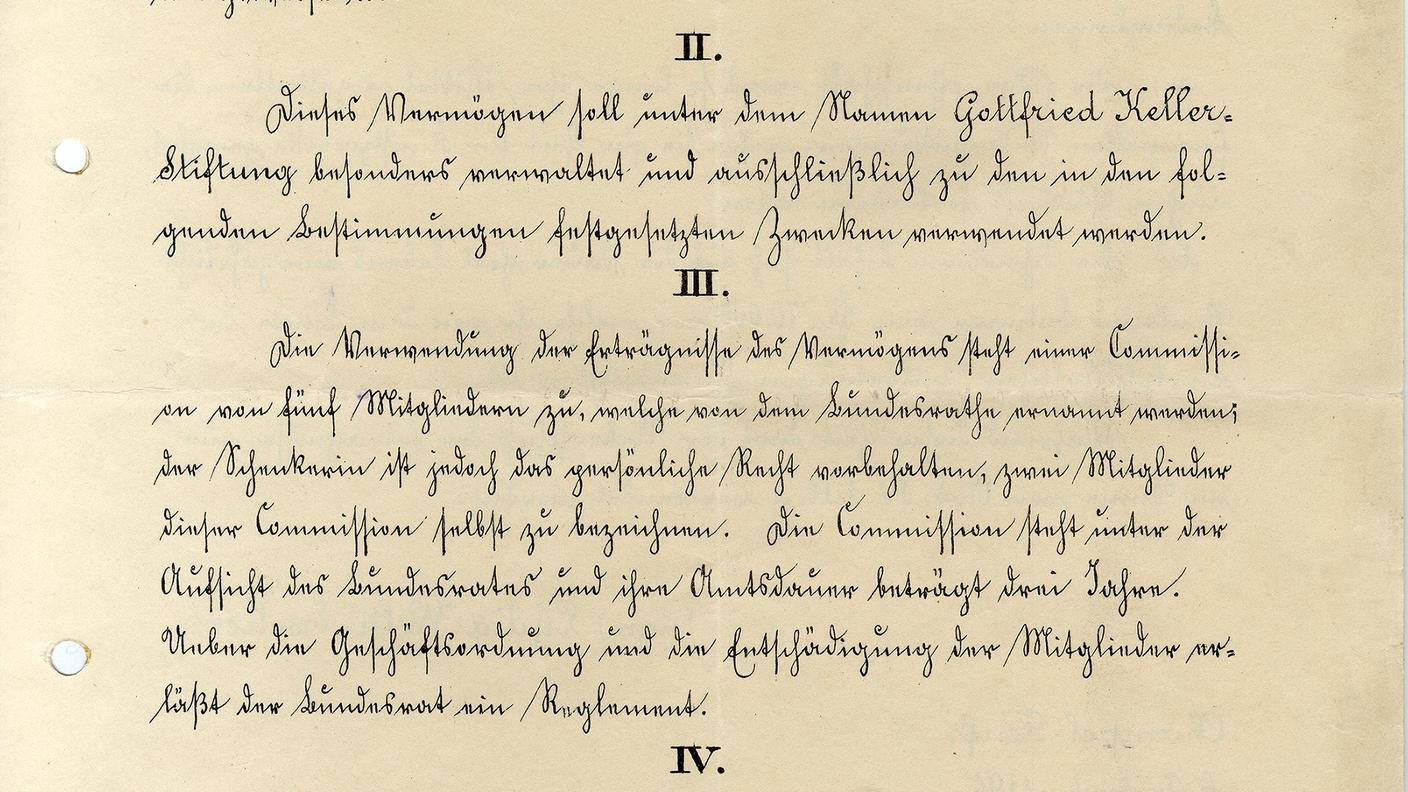 II.
Dieses Vermögen soll unter dem Namen Gottfried Keller-
Stiftung besonders verwaltet und ausschließlich zu den in den fol-
genden Bestimmungen festgesetzten Zwecken verwendet werden.
III.
Die Verwendung der Erträgnisse des Vermögens steht einer Commissi-
on von fünf Mitgliedern zu, welche von dem Bundesrathe ernannt werden;
der Schenkerin ist jedoch das persönliche Recht vorbehalten, zwei Mitglieder
dieser Commission selbst zu bezeichnen. Die Commission steht unter der
Aufsicht des Bundesrates und ihre Amtsdauer beträgt drei Jahre.
Ueber die Geschäftsordnung und die Entschädigung der Mitglieder er-
läßt der Bundesrat ein Reglement.
IV.